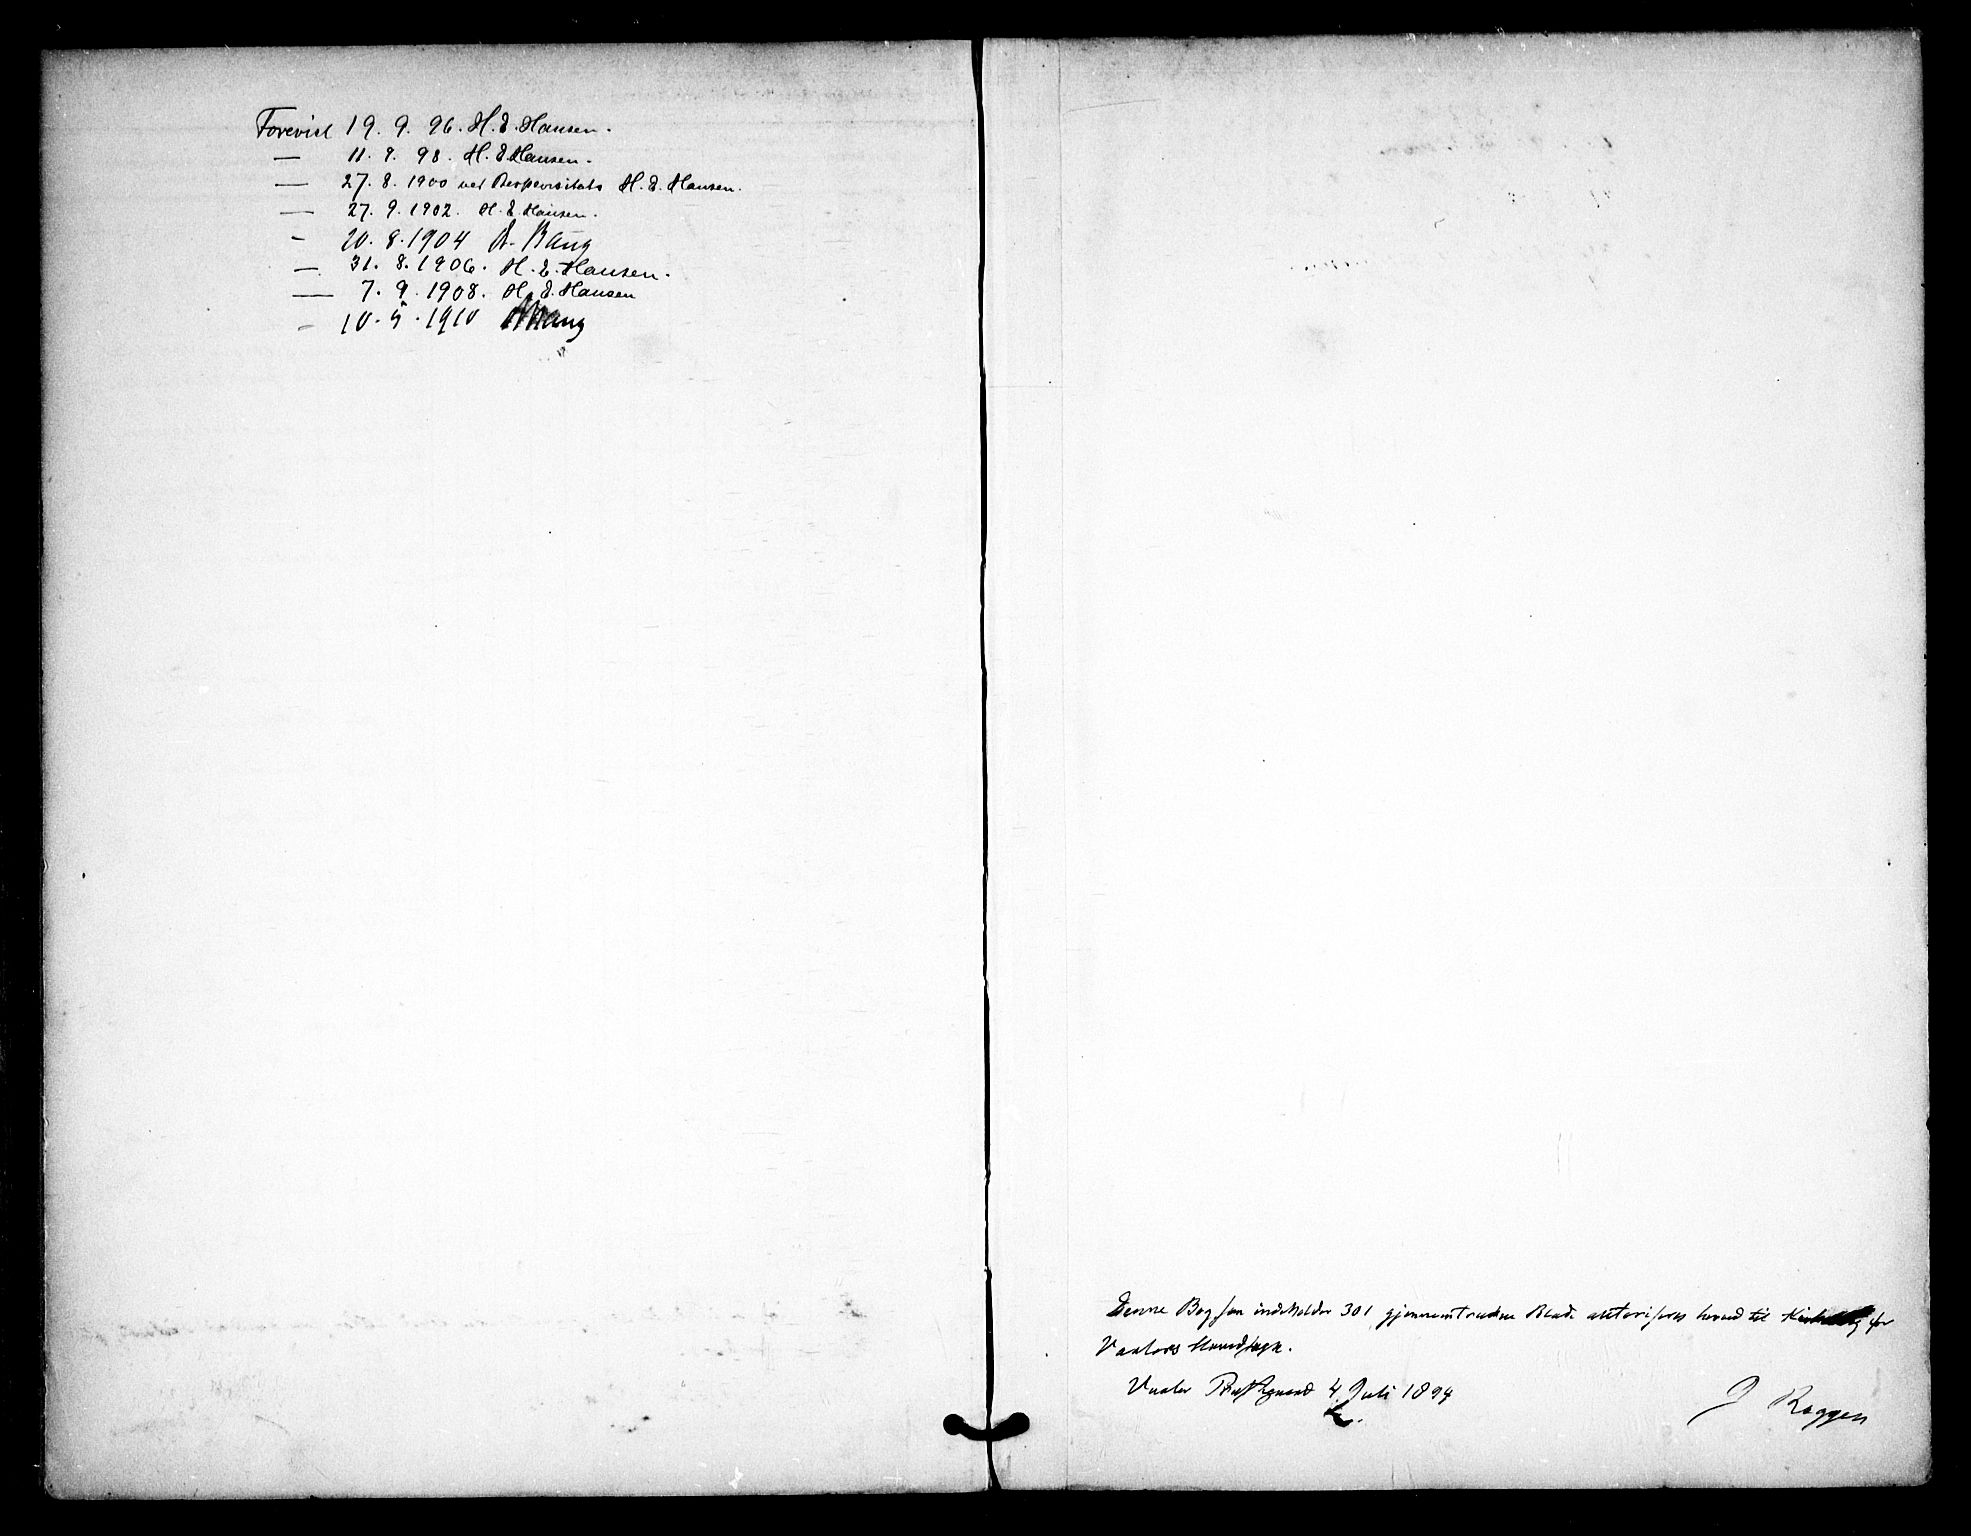 Forevist 19. 9. 96. H. E. Hansen.
— 11. 9. 98. H. E. Hansen.
— 27. 8. 1900 ved Bispevisitats H. E. Hansen.
— 27. 9. 1902. H. E. Hansen.
- 20. 8. 1904 A. Bang
— 31. 8. 1906. H. E. Hansen.
— 7. 9. 1908. H. E. Hansen
- 10. 5. 1910 Bang
Denne Bog som indeholder 301 gjennemtrukne Blade autoriseres herved til Kirkebog for
Vaalers Hovedsogn.
Vaaler Præstegaard 4 Juli 1894
J Roggen